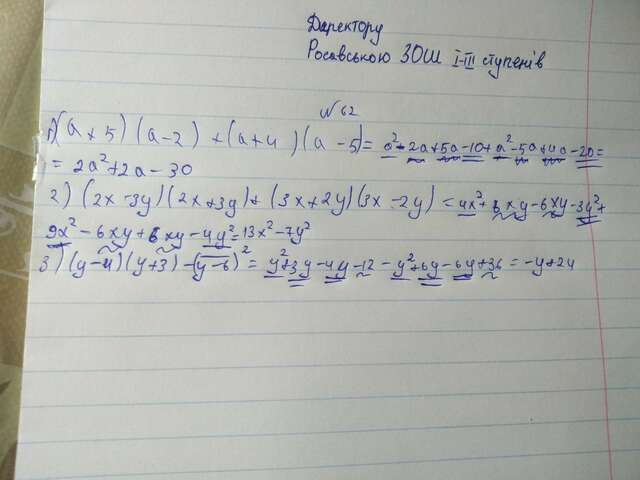 Директору
Росавською ЗОШ I-III ступенів
№62
1) (a+5)(a-2)+(a+4)(a-5)=a²-2a+5a-10+a²-5a+4a-20=
=2a²+2a-30
2) (2x-3y)(2x+3y)+(3x+2y)(3x-2y)=4x²+6xy-6xy-3y²+
9x²-6xy+6xy-4y²=13x²-7y²
3) (y-4)(y+3)-(y-6)²=y²+3y-4y-12-y²+6y-6y+36=-y+24